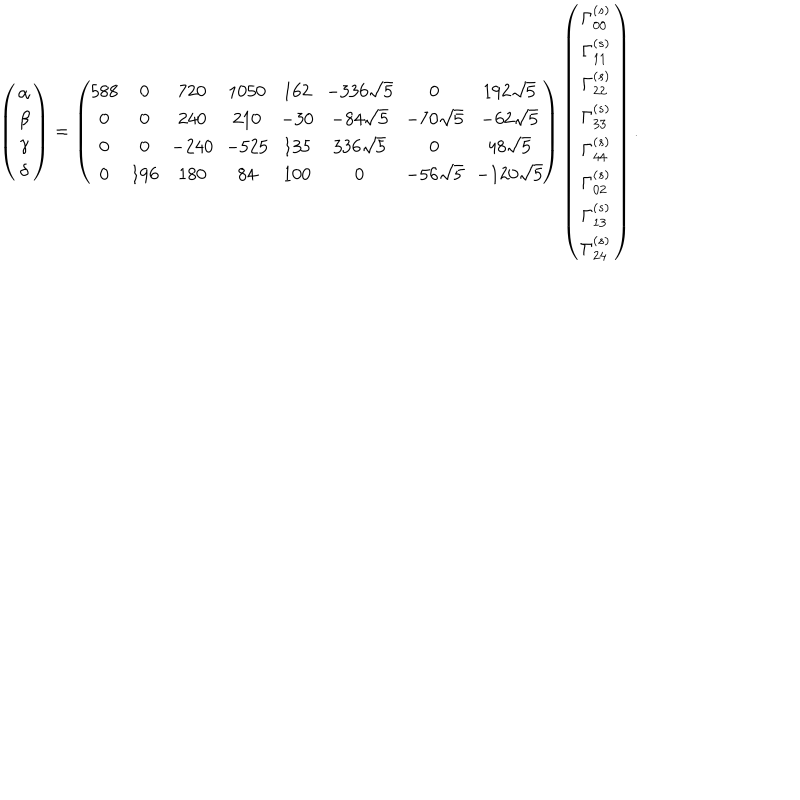 \begin{pmatrix} \alpha \\ \beta \\ \gamma \\ \delta \end{pmatrix} = \begin{pmatrix} 588 & 0 & 720 & 1050 & 162 & -336\sqrt{5} & 0 & 192\sqrt{5} \\ 0 & 0 & 240 & 210 & -30 & -84\sqrt{5} & -70\sqrt{5} & -62\sqrt{5} \\ 0 & 0 & -240 & -525 & 135 & 336\sqrt{5} & 0 & 48\sqrt{5} \\ 0 & 196 & 180 & 84 & 100 & 0 & -56\sqrt{5} & -120\sqrt{5} \end{pmatrix} \begin{pmatrix} \Gamma_{00}^{(s)} \\ \Gamma_{11}^{(s)} \\ \Gamma_{22}^{(s)} \\ \Gamma_{33}^{(s)} \\ \Gamma_{44}^{(s)} \\ \Gamma_{02}^{(s)} \\ \Gamma_{13}^{(s)} \\ \Gamma_{24}^{(s)} \end{pmatrix} .